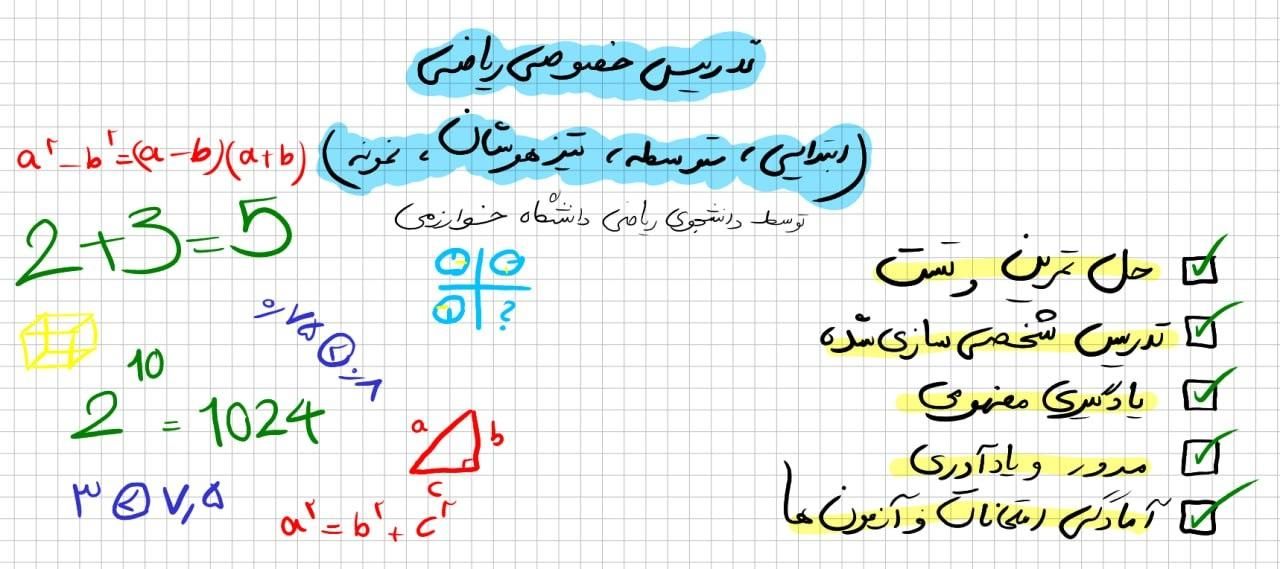 تدریس خصوصی ریاضی
(ابتدایی، متوسطه، تیزهوشان، نمونه)
توسط دانشجوی ریاضی دانشگاه خوارزمی
a² - b² = (a-b)(a+b)
2+3=5
2¹⁰ = 1024
۳ < ۷,۵
?
a b
c
a² = b² + c²
حل تمرین و تست
تدریس شخصی سازی شده
یادگیری مفهومی
مدور و یادآوری
آمادگی امتحانات و آزمون ها